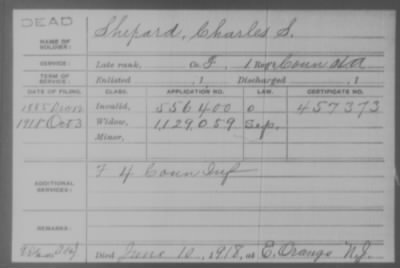 DEAD
NAME OF SOLDIER: Shepard, Charles S.
SERVICE: Late rank, Co. F, 1 Reg't Conn H A
TERM OF SERVICE: Enlisted , 1 Discharged , 1
DATE OF FILING. CLASS. APPLICATION NO. LAW. CERTIFICATE NO.
1885 Invalid, 556400 0 457373
1918 Oct 3 Widow, 1,129,059 Sep.
Minor,
ADDITIONAL SERVICES: F 4 Conn Inf
REMARKS:
Died June 10, 1918, at E. Orange N.J.